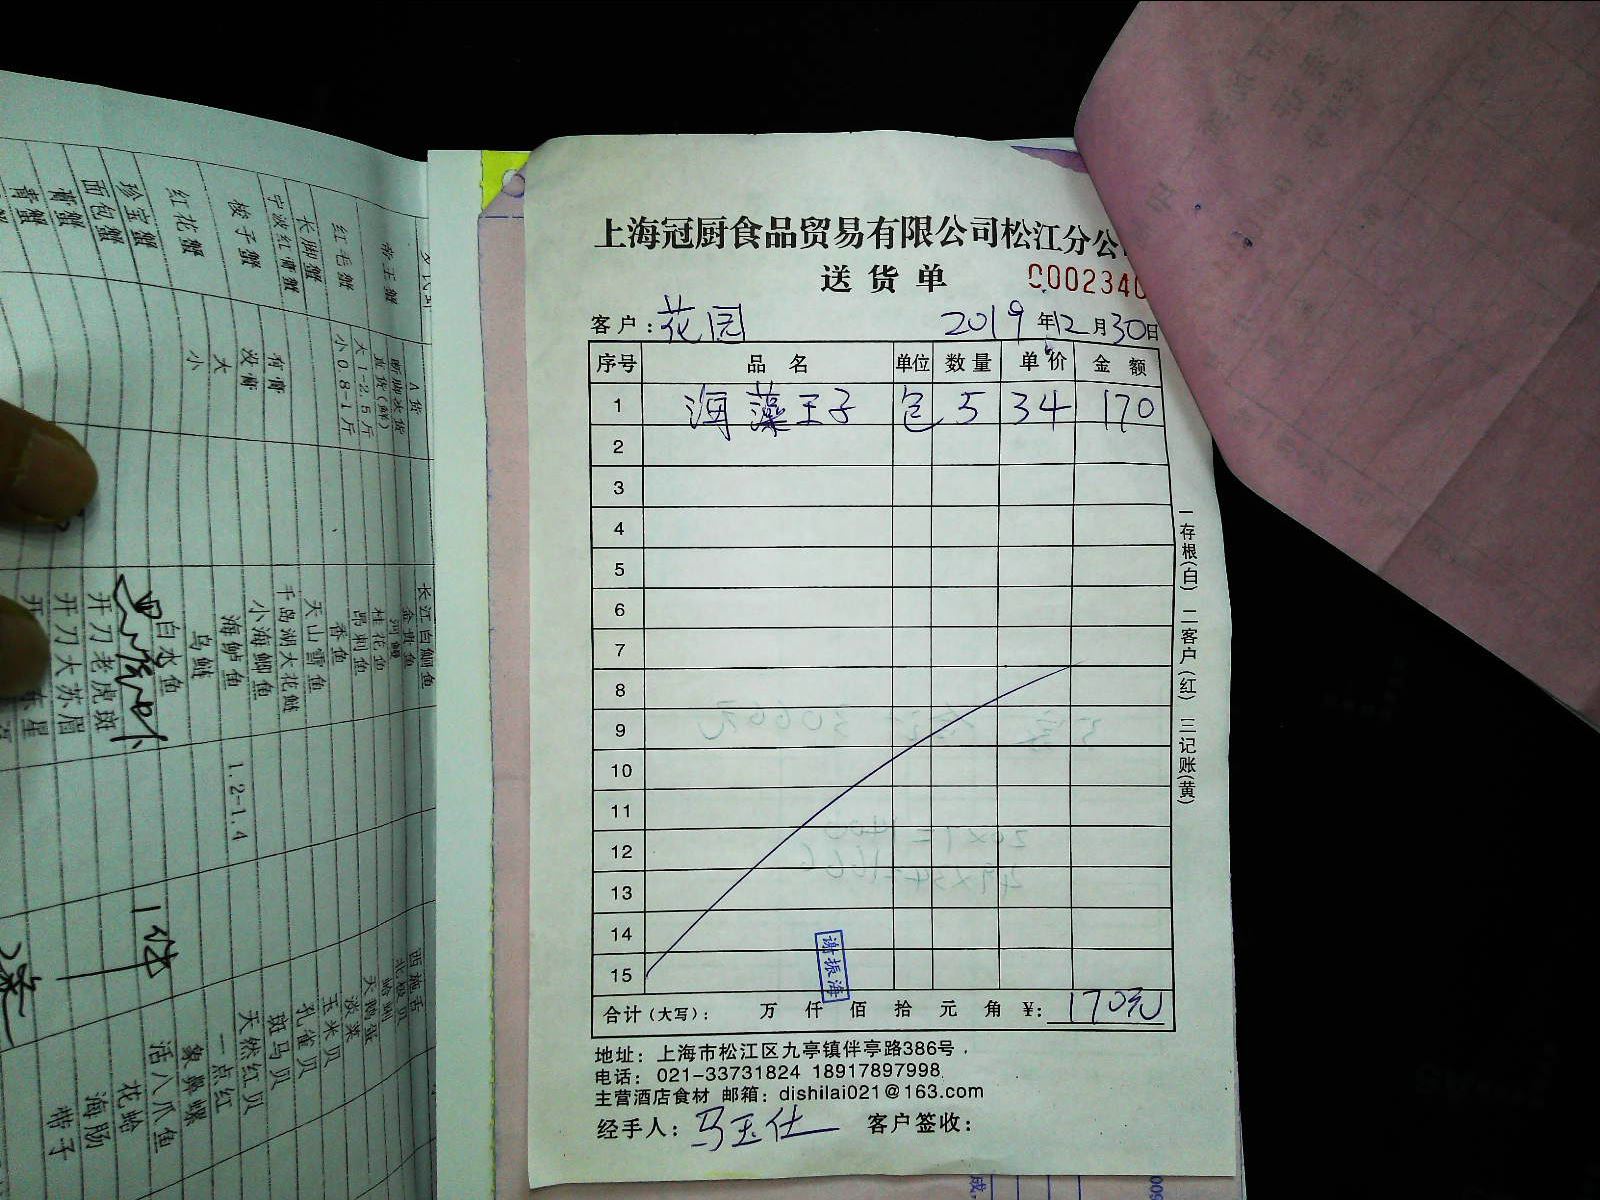 上海冠厨食品贸易有限公司松江分公
送货单 C000234
客户：花园 2019年12月30日
序号 品名 单位 数量 单价 金额
1 海藻王子 包 5 34 170
2
3
4
5
6
7
8
9
10
11
12
13
14
15
谢振海
合计（大写）： 万 仟 佰 拾 元 角 ¥：170元
地址：上海市松江区九亭镇伴亭路386号
电话：021-33731824 18917897998
主营酒店食材 邮箱：dishilai021@163.com
经手人：马玉仕 客户签收：
一存根(白) 二客户(红) 三记账(黄)
帝王蟹
红毛蟹
长脚蟹
宁波红膏蟹
梭子蟹
红花蟹
珍宝蟹
面包蟹
膏蟹
青蟹
A货
断脚次货
直货(鲜)
大1-2.5斤
小0.8-1斤
有膏
没膏
大
小
长江白鮰鱼
金贵鱼
河鳗
桂花鱼
昂刺鱼
香鱼
天山雪鱼
千岛湖大花鲢
小海鲫鱼
海鲈鱼
乌鲢
白水鱼
开刀老虎斑
开刀大苏眉
1.2-1.4
西施舌
北极贝
蛤蜊
天鹅蛋
淡菜
玉米贝
孔雀贝
斑马贝
天然红贝
一点红
象鼻螺
活八爪鱼
花蛤
海肠
带子